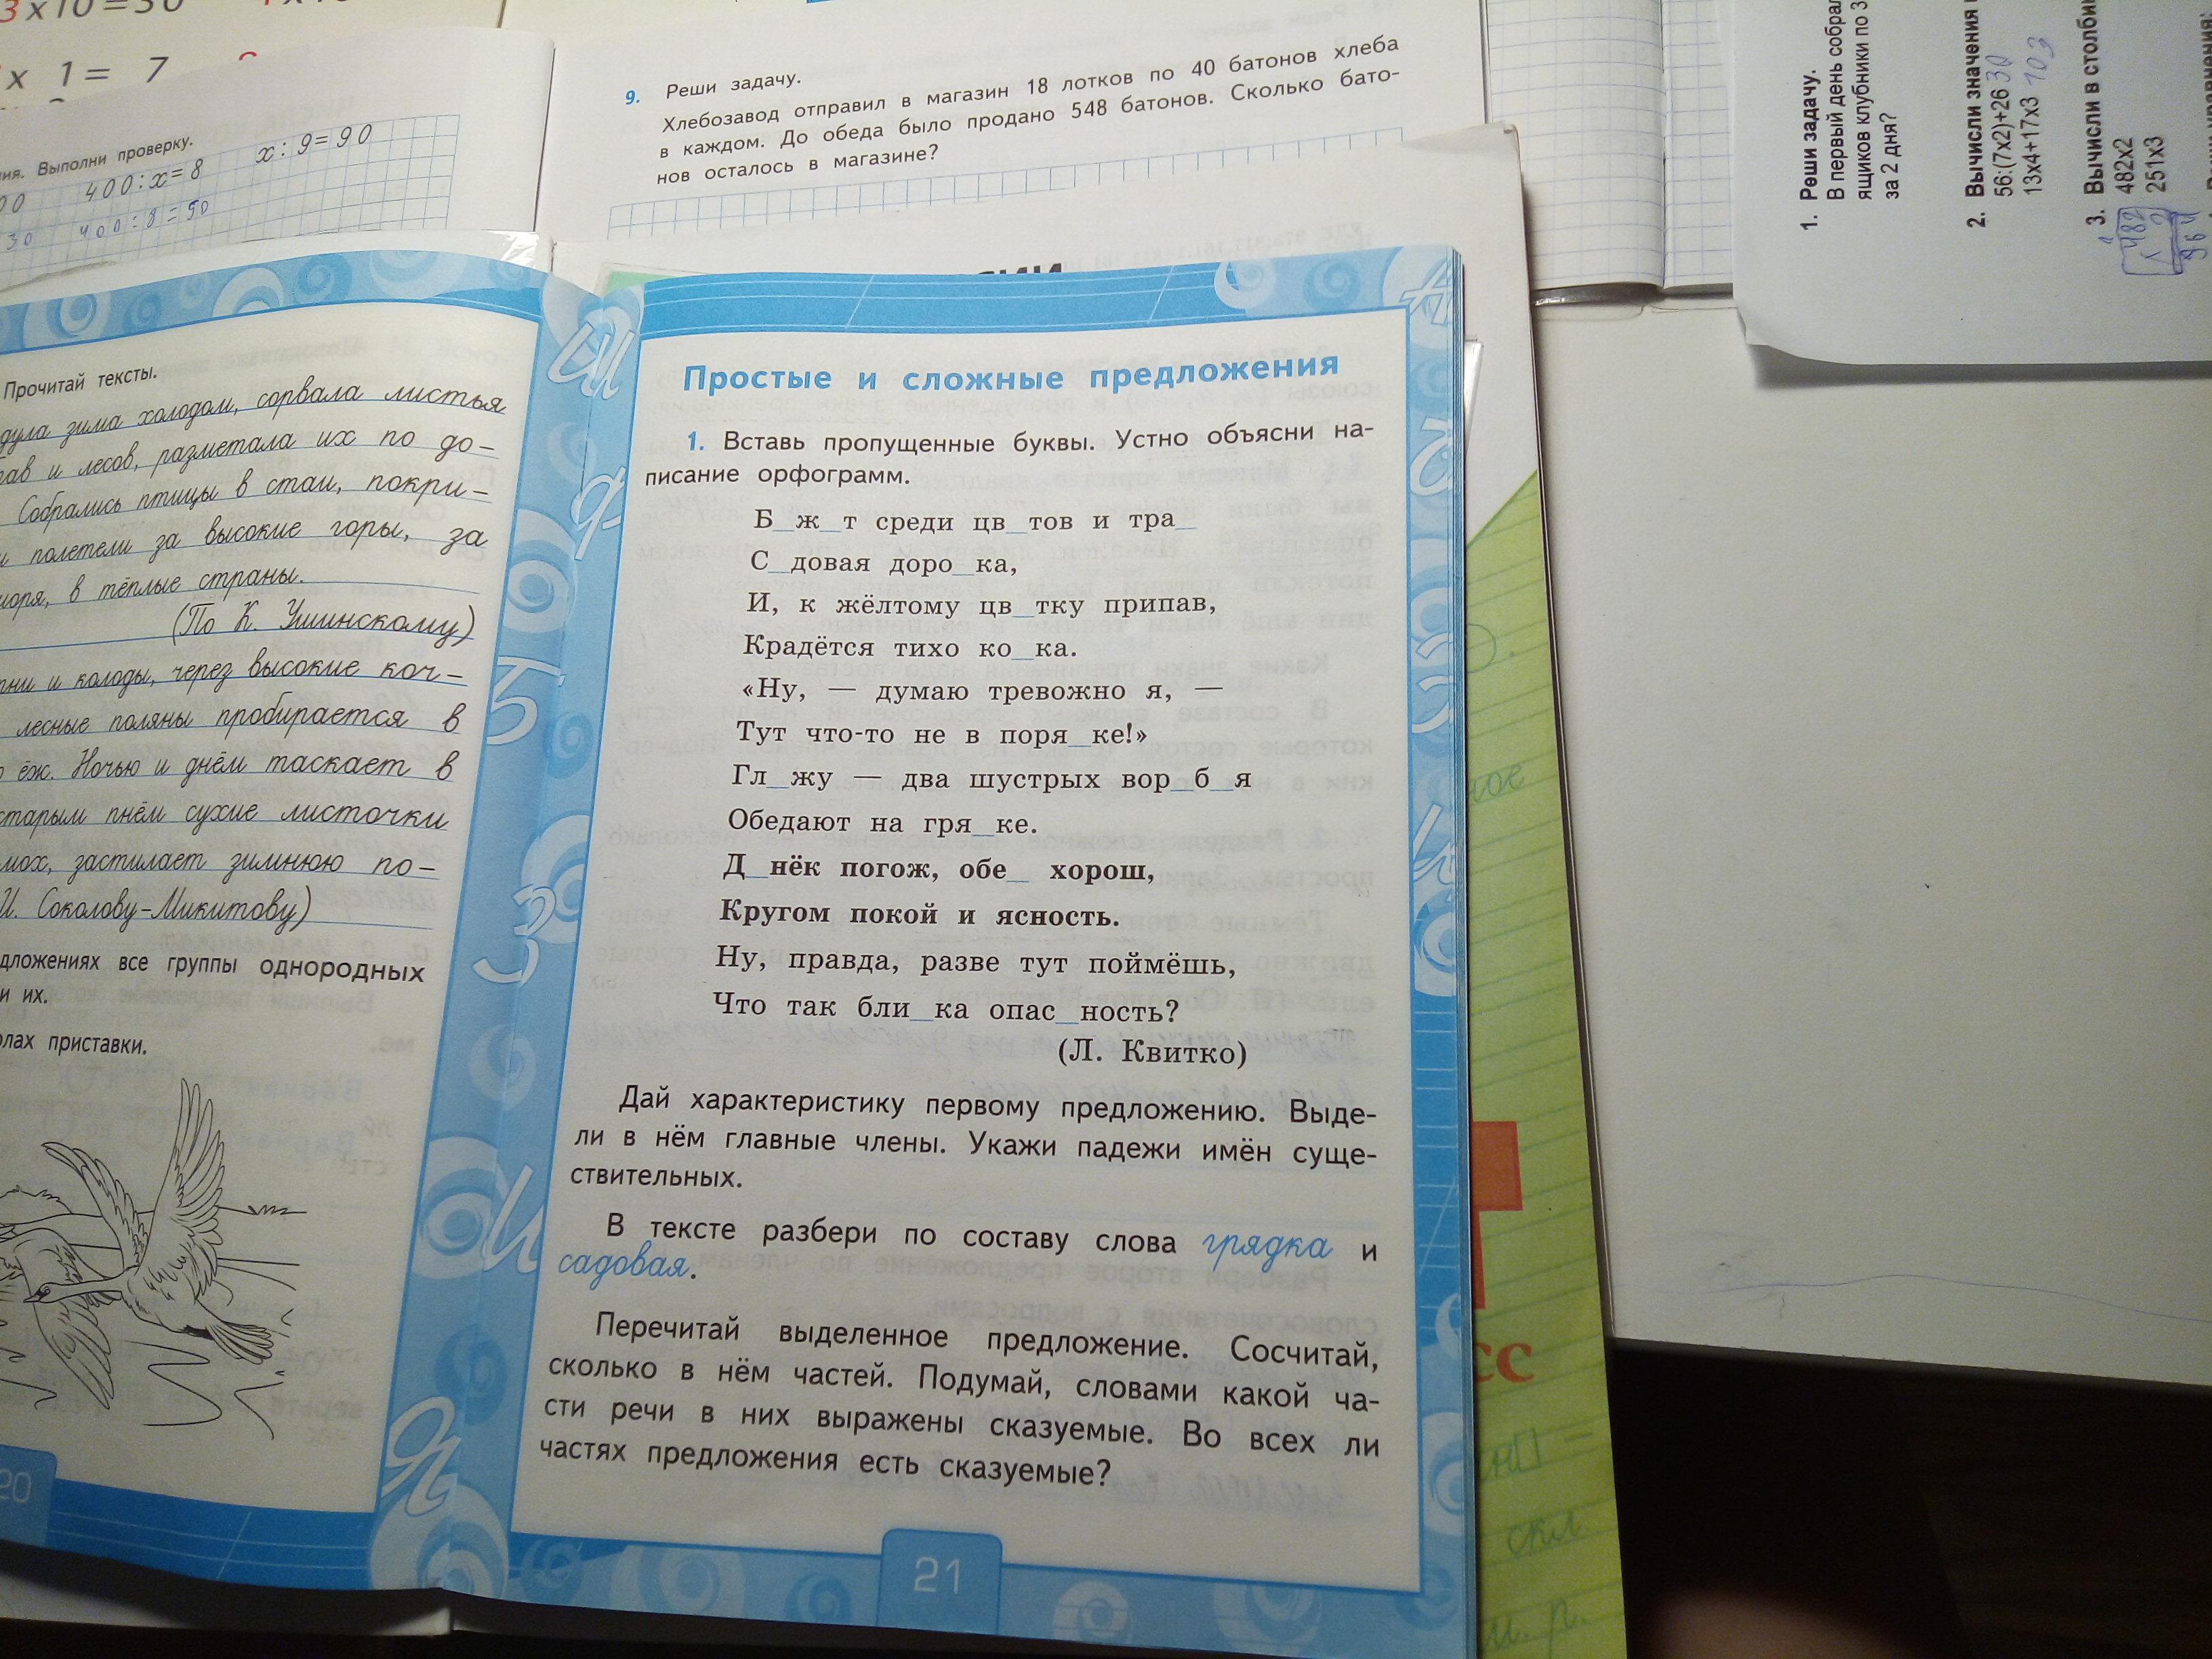 3 x 10 = 30
x 1 = 7
Выполни проверку.
400 : x = 8
x : 9 = 90
30
400 : 8 = 50
9. Реши задачу.
Хлебозавод отправил в магазин 18 лотков по 40 батонов хлеба
в каждом. До обеда было продано 548 батонов. Сколько бато-
нов осталось в магазине?
1. Реши задачу.
В первый день собрал
ящиков клубники по 3
за 2 дня?
2. Вычисли значения
56:(7x2)+26 30
13x4+17x3 103
3. Вычисли в столби
482x2
251x3
482
x 2
964
Прочитай тексты.
дула зима холодом, сорвала листья
рав и лесов, разметала их по до-
Собрались птицы в стаи, покри-
и полетели за высокие горы, за
моря, в тёплые страны.
(По К. Ушинскому)
пни и колоды, через высокие коч-
лесные поляны пробирается в
о ёж. Ночью и днём таскает в
старым пнём сухие листочки
мох, застилает зимнюю по-
И. Соколову-Микитову)
дложениях все группы однородных
и их.
олах приставки.
20
Простые и сложные предложения
1. Вставь пропущенные буквы. Устно объясни на-
писание орфограмм.
Б_ж_т среди цв_тов и тра_
С_довая доро_ка,
И, к жёлтому цв_тку припав,
Крадётся тихо ко_ка.
«Ну, — думаю тревожно я, —
Тут что-то не в поря_ке!»
Гл_жу — два шустрых вор_б_я
Обедают на гря_ке.
Д_нёк погож, обе_ хорош,
Кругом покой и ясность.
Ну, правда, разве тут поймёшь,
Что так бли_ка опас_ность?
(Л. Квитко)
Дай характеристику первому предложению. Выде-
ли в нём главные члены. Укажи падежи имён суще-
ствительных.
В тексте разбери по составу слова грядка и
садовая.
Перечитай выделенное предложение. Сосчитай,
сколько в нём частей. Подумай, словами какой ча-
сти речи в них выражены сказуемые. Во всех ли
частях предложения есть сказуемые?
21
сс
скл